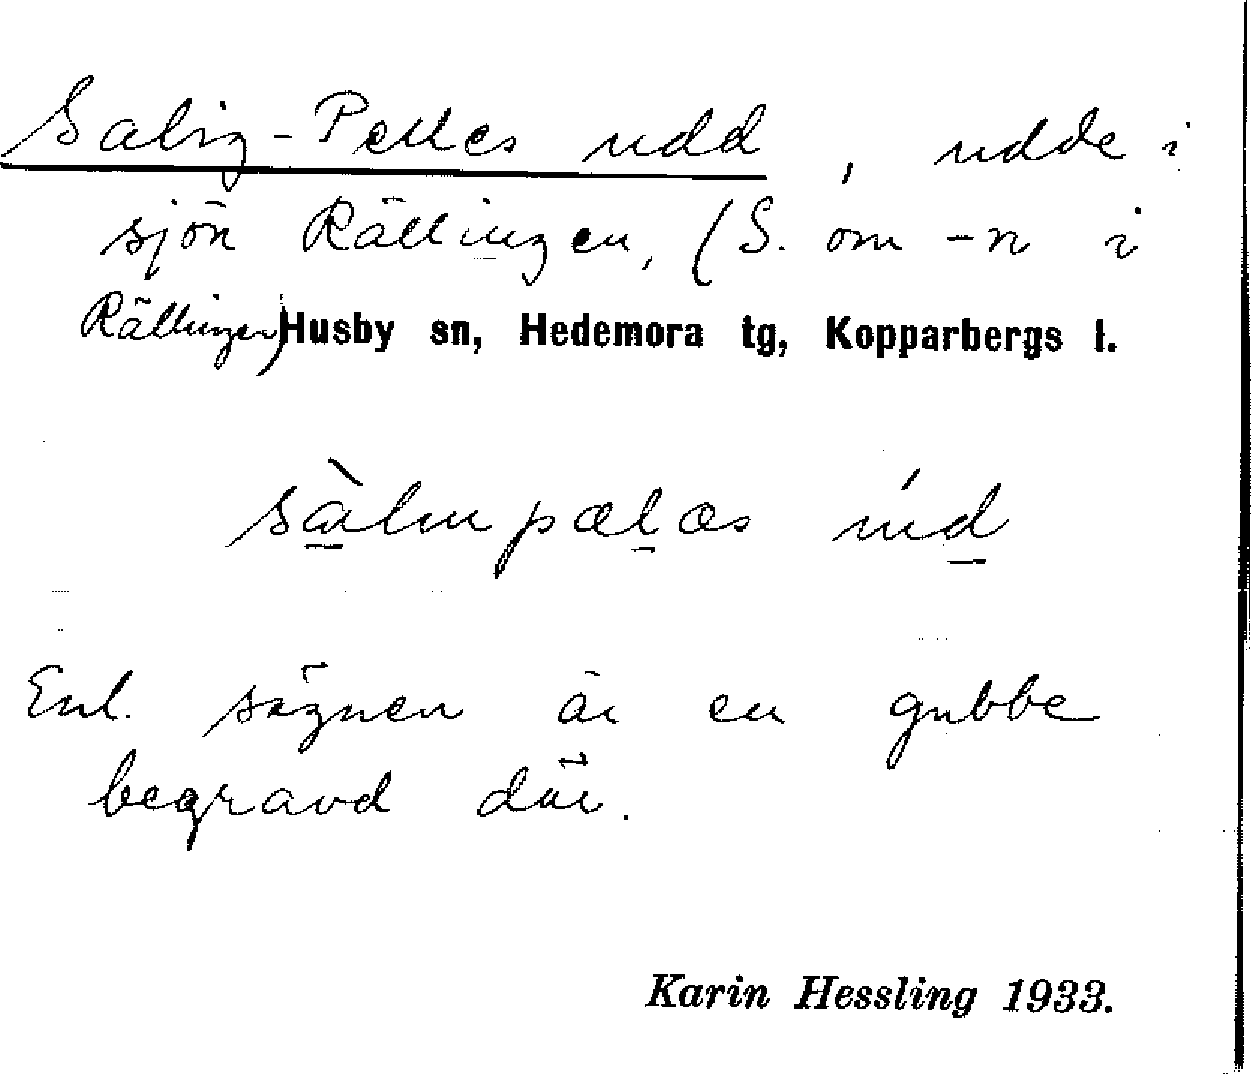 Salig-Pelles udd, udde i
sjön Rällingen, (S. om -n i
Rällingen) Husby sn, Hedemora tg, Kopparbergs l.
Enl. sägnen är en gubbe
begravd där.
Karin Hessling 1933.